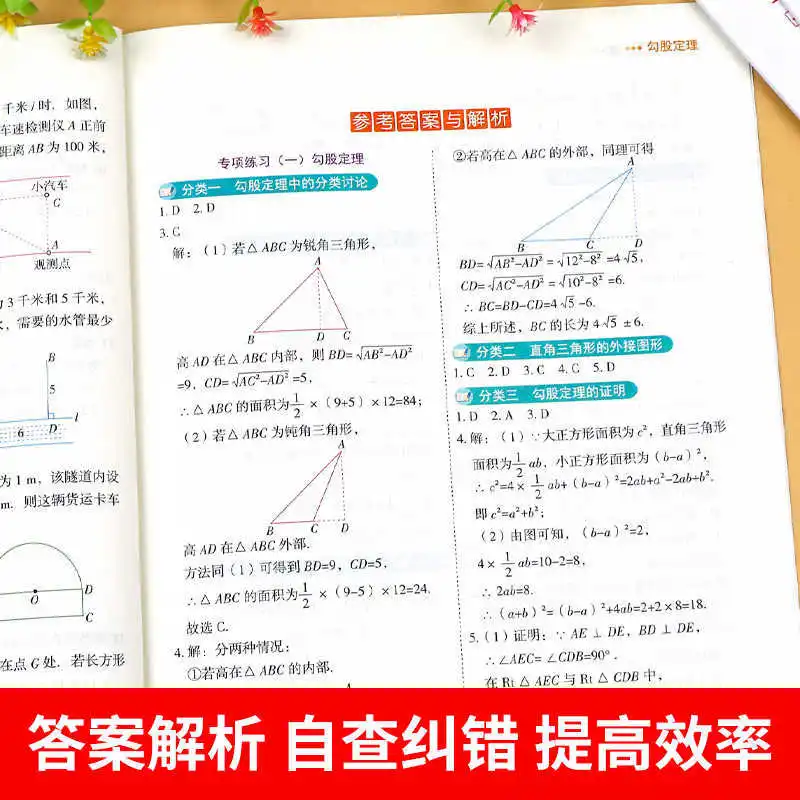 千米/时. 如图,
车速检测仪 A 正前
距离 AB 为 100 米,
小汽车
C
A
观测点
3 千米和 5 千米,
需要的水管最少
B
5
l
6
D
为 1 m, 该隧道内设
m. 则这辆货运卡车
O
D
C
在点 G 处. 若长方形
勾股定理
参考答案与解析
专项练习(一)勾股定理
分类一 勾股定理中的分类讨论
1. D 2. D
3. C
解:(1)若△ ABC 为锐角三角形,
A
B D C
高 AD 在△ ABC 内部, 则 BD= √AB²-AD²
=9, CD= √AC²-AD² =5,
∴△ ABC 的面积为 1/2 ×(9+5)×12=84;
(2)若△ ABC 为钝角三角形,
A
B C D
高 AD 在△ ABC 外部.
方法同(1)可得到 BD=9, CD=5,
∴△ ABC 的面积为 1/2 ×(9-5)×12=24.
故选 C.
4. 解: 分两种情况:
①若高在△ ABC 的内部.
②若高在△ ABC 的外部, 同理可得
A
B C D
BD= √AB²-AD² = √12²-8² =4√5,
CD= √AC²-AD² = √10²-8² =6.
∴ BC=BD-CD=4√5 -6.
综上所述, BC 的长为 4√5 ±6.
分类二 直角三角形的外接图形
1. C 2. D 3. C 4. C 5. D
分类三 勾股定理的证明
1. D 2. A 3. D
4. 解:(1)∵大正方形面积为 c², 直角三角形
面积为 1/2 ab, 小正方形面积为(b-a)²,
∴ c²=4× 1/2 ab+(b-a)²=2ab+a²-2ab+b².
即 c²=a²+b²;
(2)由图可知,(b-a)²=2,
4× 1/2 ab=10-2=8,
∴ 2ab=8.
∴(a+b)²=(b-a)²+4ab=2+2×8=18.
5.(1)证明: ∵ AE ⊥ DE, BD ⊥ DE,
∴∠AEC= ∠CDB=90°.
在 Rt △ AEC 与 Rt △ CDB 中,
答案解析 自查纠错 提高效率